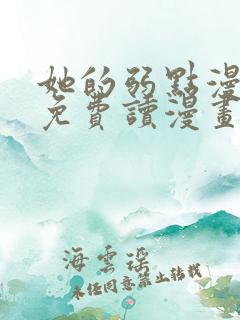 她的弱點漫
免費讀漫畫
海雲瑤
未經同意禁止轉載